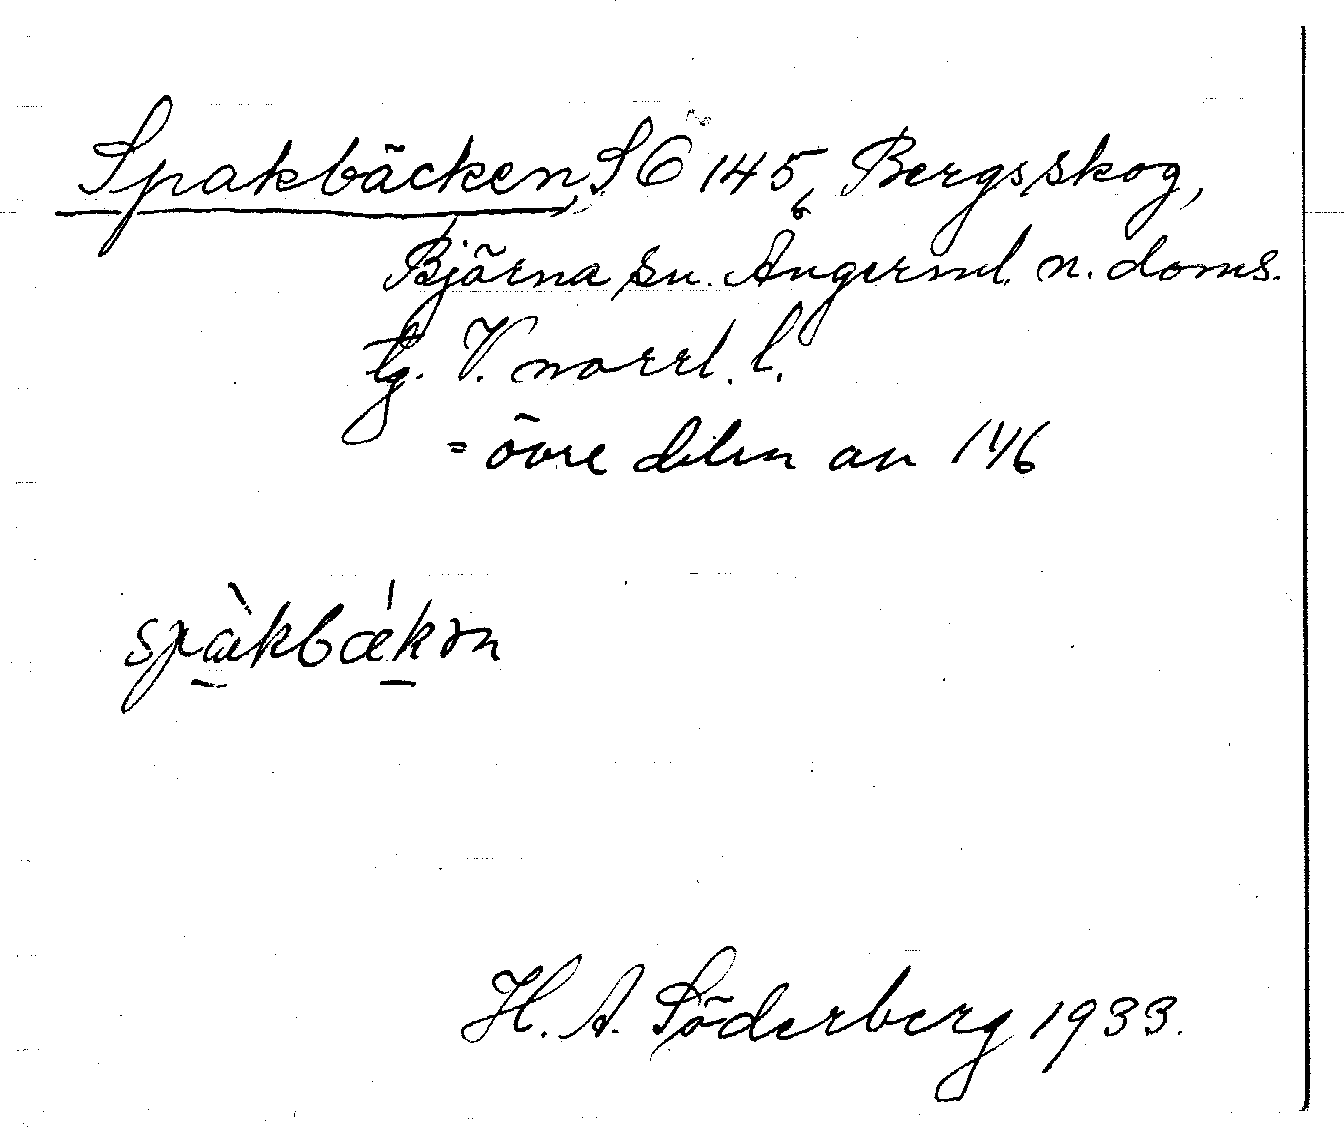 Spakbäcken, SO 145, Bergsskog,
Björna sn. Ångerml. n. doms.
tg. V. norrl. l.
= övre delen av 146
spàkbǽkɤn
H. A. Söderberg 1933.